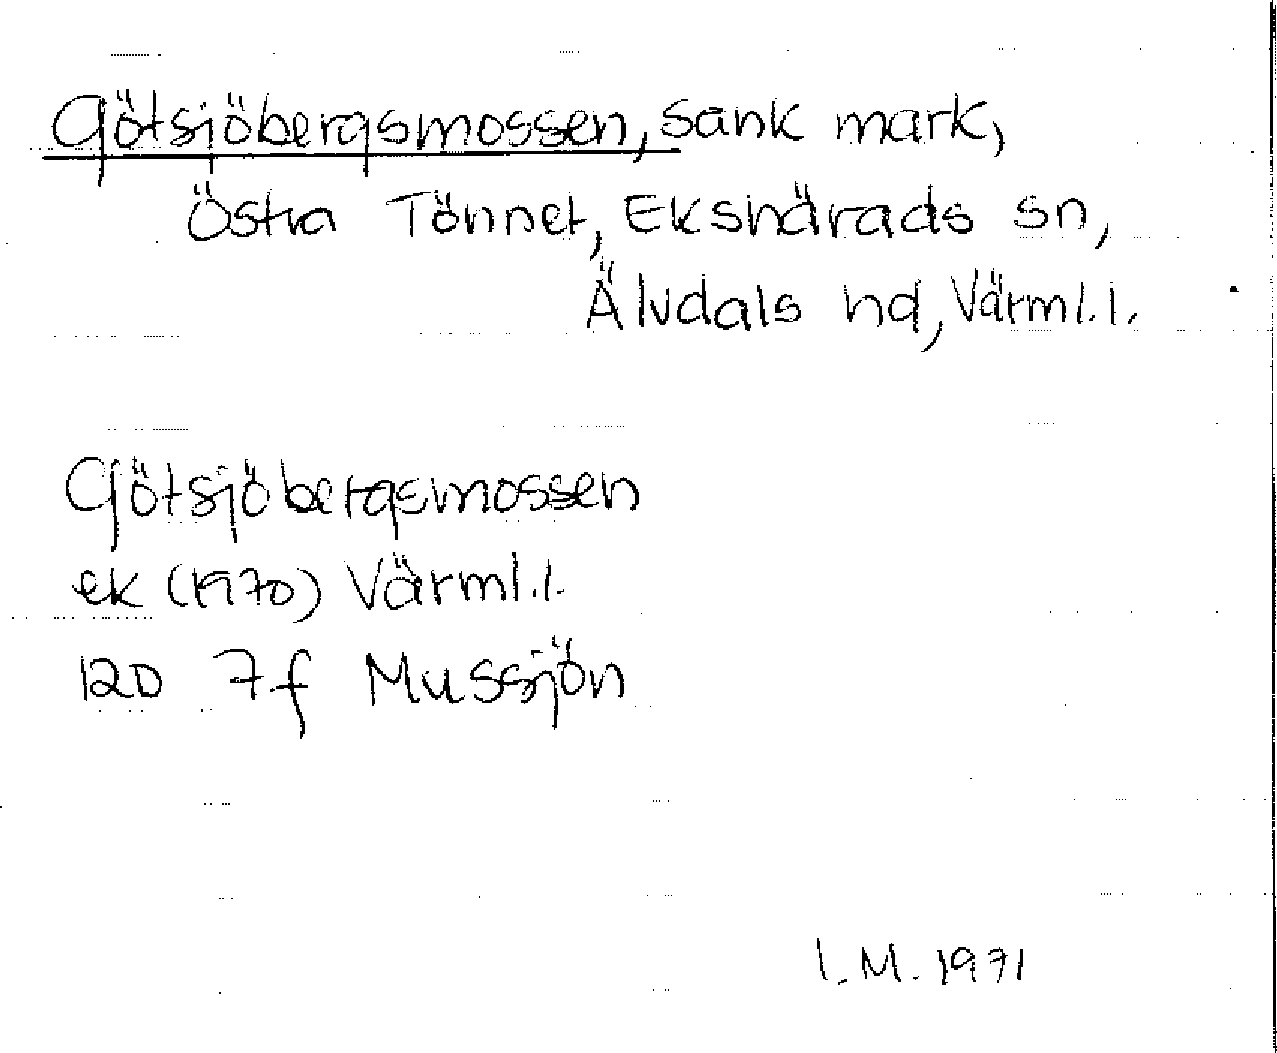 Götsjöbergsmossen, sank mark,
Östra Tönnet, Ekshärads sn,
Älvdals hd, Värml.l.
Götsjöbergsmossen
ek (1970) Värml.l.
12D 7f Mussjön
I.M. 1971